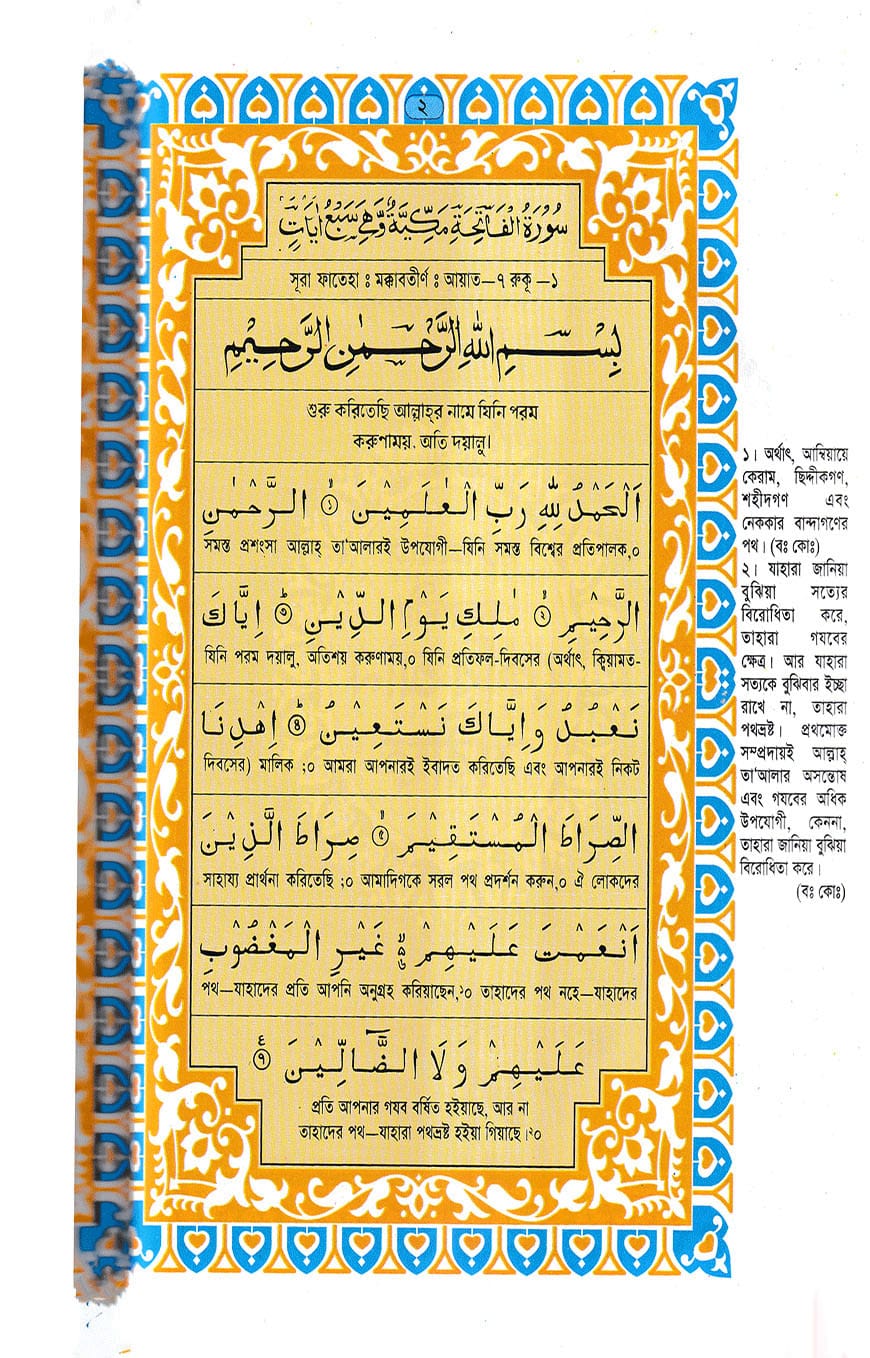 ২
سُوْرَةُ الْفَاتِحَةِ مَكِّيَّةٌ وَّهِيَ سَبْعُ اٰيَاتٍ
সূরা ফাতেহা ঃ মক্কাবতীর্ণ ঃ আয়াত—৭ রুকূ —১
بِسْمِ اللّٰهِ الرَّحْمٰنِ الرَّحِيْمِ
শুরু করিতেছি আল্লাহ্‌র নামে যিনি পরম
করুণাময়. অতি দয়ালু।
اَلْحَمْدُ لِلّٰهِ رَبِّ الْعٰلَمِيْنَ ۙ﴿۱﴾ الرَّحْمٰنِ
সমস্ত প্রশংসা আল্লাহ্ তা'আলারই উপযোগী—যিনি সমস্ত বিশ্বের প্রতিপালক,০
الرَّحِيْمِ ۙ﴿۲﴾ مٰلِكِ يَوْمِ الدِّيْنِ ؕ﴿۳﴾ اِيَّاكَ
যিনি পরম দয়ালু, অতিশয় করুণাময়,০ যিনি প্রতিফল-দিবসের (অর্থাৎ, ক্বিয়ামত-
نَعْبُدُ وَاِيَّاكَ نَسْتَعِيْنُ ؕ﴿۴﴾ اِهْدِنَا
দিবসের) মালিক ;০ আমরা আপনারই ইবাদত করিতেছি এবং আপনারই নিকট
الصِّرَاطَ الْمُسْتَقِيْمَ ۙ﴿۵﴾ صِرَاطَ الَّذِيْنَ
সাহায্য প্রার্থনা করিতেছি ;০ আমাদিগকে সরল পথ প্রদর্শন করুন,০ ঐ লোকদের
اَنْعَمْتَ عَلَيْهِمْ ۙ۬﴿۶﴾ غَيْرِ الْمَغْضُوْبِ
পথ—যাহাদের প্রতি আপনি অনুগ্রহ করিয়াছেন,১০ তাহাদের পথ নহে—যাহাদের
عَلَيْهِمْ وَلَا الضَّآلِّيْنَ ﴿۷﴾ع
প্রতি আপনার গযব বর্ষিত হইয়াছে, আর না
তাহাদের পথ—যাহারা পথভ্রষ্ট হইয়া গিয়াছে।২০
১। অর্থাৎ, আম্বিয়ায়ে
কেরাম, ছিদ্দীকগণ,
শহীদগণ এবং
নেককার বান্দাগণের
পথ। (বঃ কোঃ)
২। যাহারা জানিয়া
বুঝিয়া সত্যের
বিরোধিতা করে,
তাহারা গযবের
ক্ষেত্র। আর যাহারা
সত্যকে বুঝিবার ইচ্ছা
রাখে না, তাহারা
পথভ্রষ্ট। প্রথমোক্ত
সম্প্রদায়ই আল্লাহ্
তা'আলার অসন্তোষ
এবং গযবের অধিক
উপযোগী, কেননা,
তাহারা জানিয়া বুঝিয়া
বিরোধিতা করে।
(বঃ কোঃ)